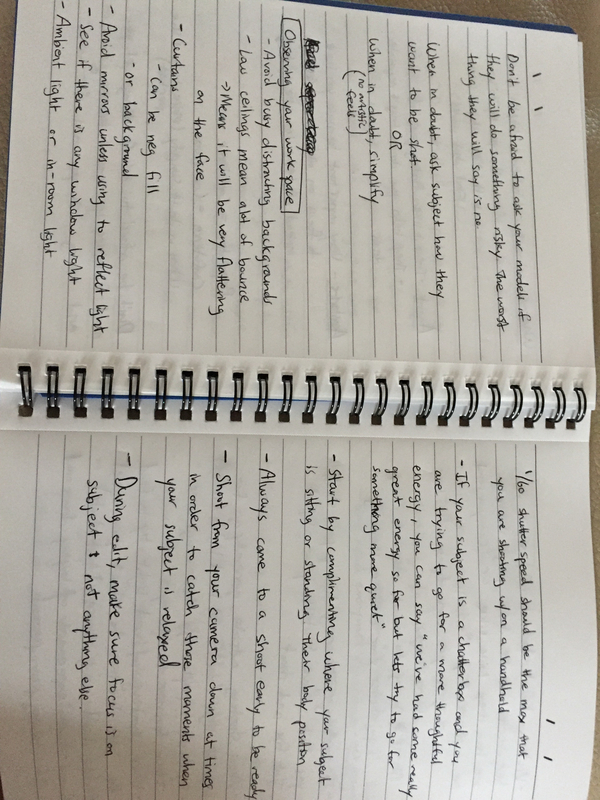 Don't be afraid to ask your models if
they will do something risky. The worst
thing they will say is no
When in doubt, ask subject how they
want to be shot.
OR
When in doubt, simplify
(no artistic
feels)
Observing your work space
- Avoid busy distracting backgrounds
- Low ceilings mean alot of bounce
→ Means it will be very flattering
on the face
- Curtains
- Can be neg fill
- or background
- Avoid mirrors unless using to reflect light
- See if there is any window light
- Ambient light or in-room light
1/60 shutter speed should be the max that
you are shooting w/ on a handheld
- If your subject is a chatterbox and you
are trying to go for a more thoughtful
energy, you can say "we've had some really
great energy so far but lets try to go for
something more quiet"
- Start by complimenting where your subject
is sitting or standing. Their body position
- Always come to a shoot early to be ready
- Shoot from your camera down at times
in order to catch those moments when
your subject is relaxed
- During edit, make sure focus is on
subject & not anything else.